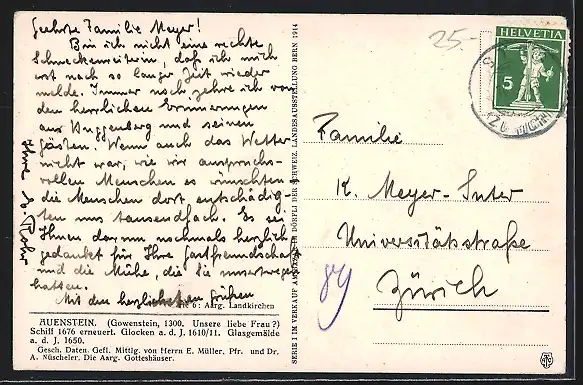 Geehrte Familie Meyer!
Bin ich nicht eine rechte
Schneckenreiterin, daß ich mich
erst nach so langer Zeit wieder
melde. Immer noch zehre ich von
den herrlichen Erinnerungen
aus Knggenberg und seinen
Gästen. Wenn auch das Wetter
nicht war, wie wir anspruchs-
vollen Menschen es wünschten
die Menschen dort entschädig-
ten uns tausendfach. Es sei
Ihnen darum nochmals herzlich
gedankt für Ihre Gastfreundschaft
und die Mühe, die Sie unsertwegen
hatten.
Mit den herzlichsten Grüßen
Ihre
Rohr
6: Aarg. Landkirchen
AUENSTEIN. (Gowenstein, 1300. Unsere liebe Frau?)
Schiff 1676 erneuert. Glocken a. d. J. 1610/11. Glasgemälde
a. d. J. 1650.
Gesch. Daten. Gefl. Mittlg. von Herrn E. Müller, Pfr. und Dr.
A. Nüscheler. Die Aarg. Gotteshäuser.
SERIE I IM VERKAUF AM KARTEN DÖRFLI DER SCHWEIZ. LANDESAUSSTELLUNG BERN 1914
25.-
HELVETIA
5
Familie
K. Meyer-Suter
Universitätstraße
89
Zürich